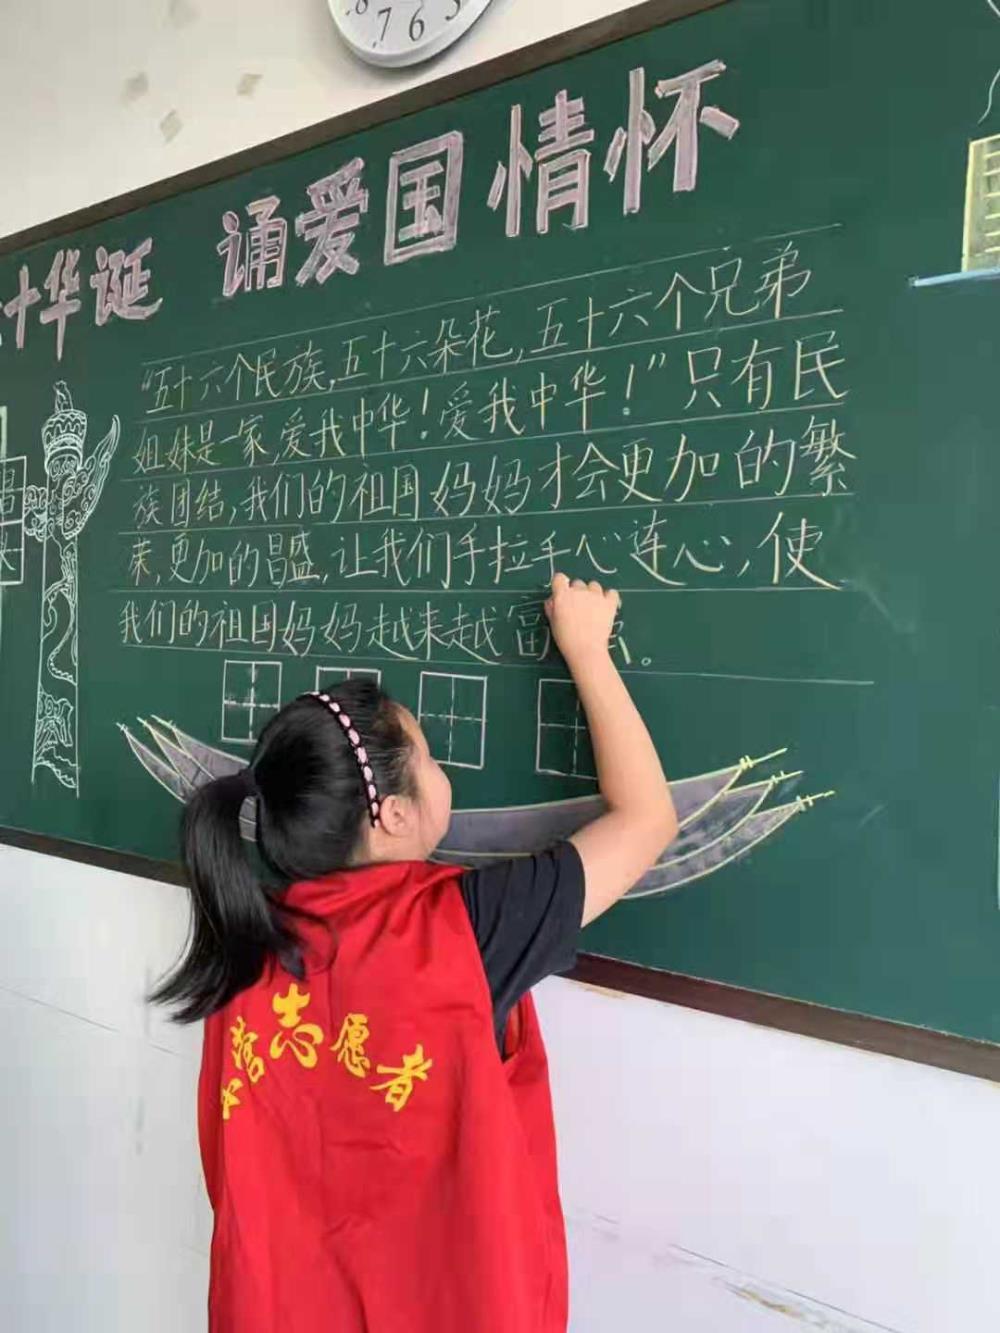 十华诞 诵爱国情怀
“五十六个民族,五十六朵花,五十六个兄弟
姐妹是一家,爱我中华！爱我中华！”只有民
族团结,我们的祖国妈妈才会更加的繁
荣,更加的昌盛,让我们手拉手心连心,使
我们的祖国妈妈越来越富
志愿者
8 7 6 5